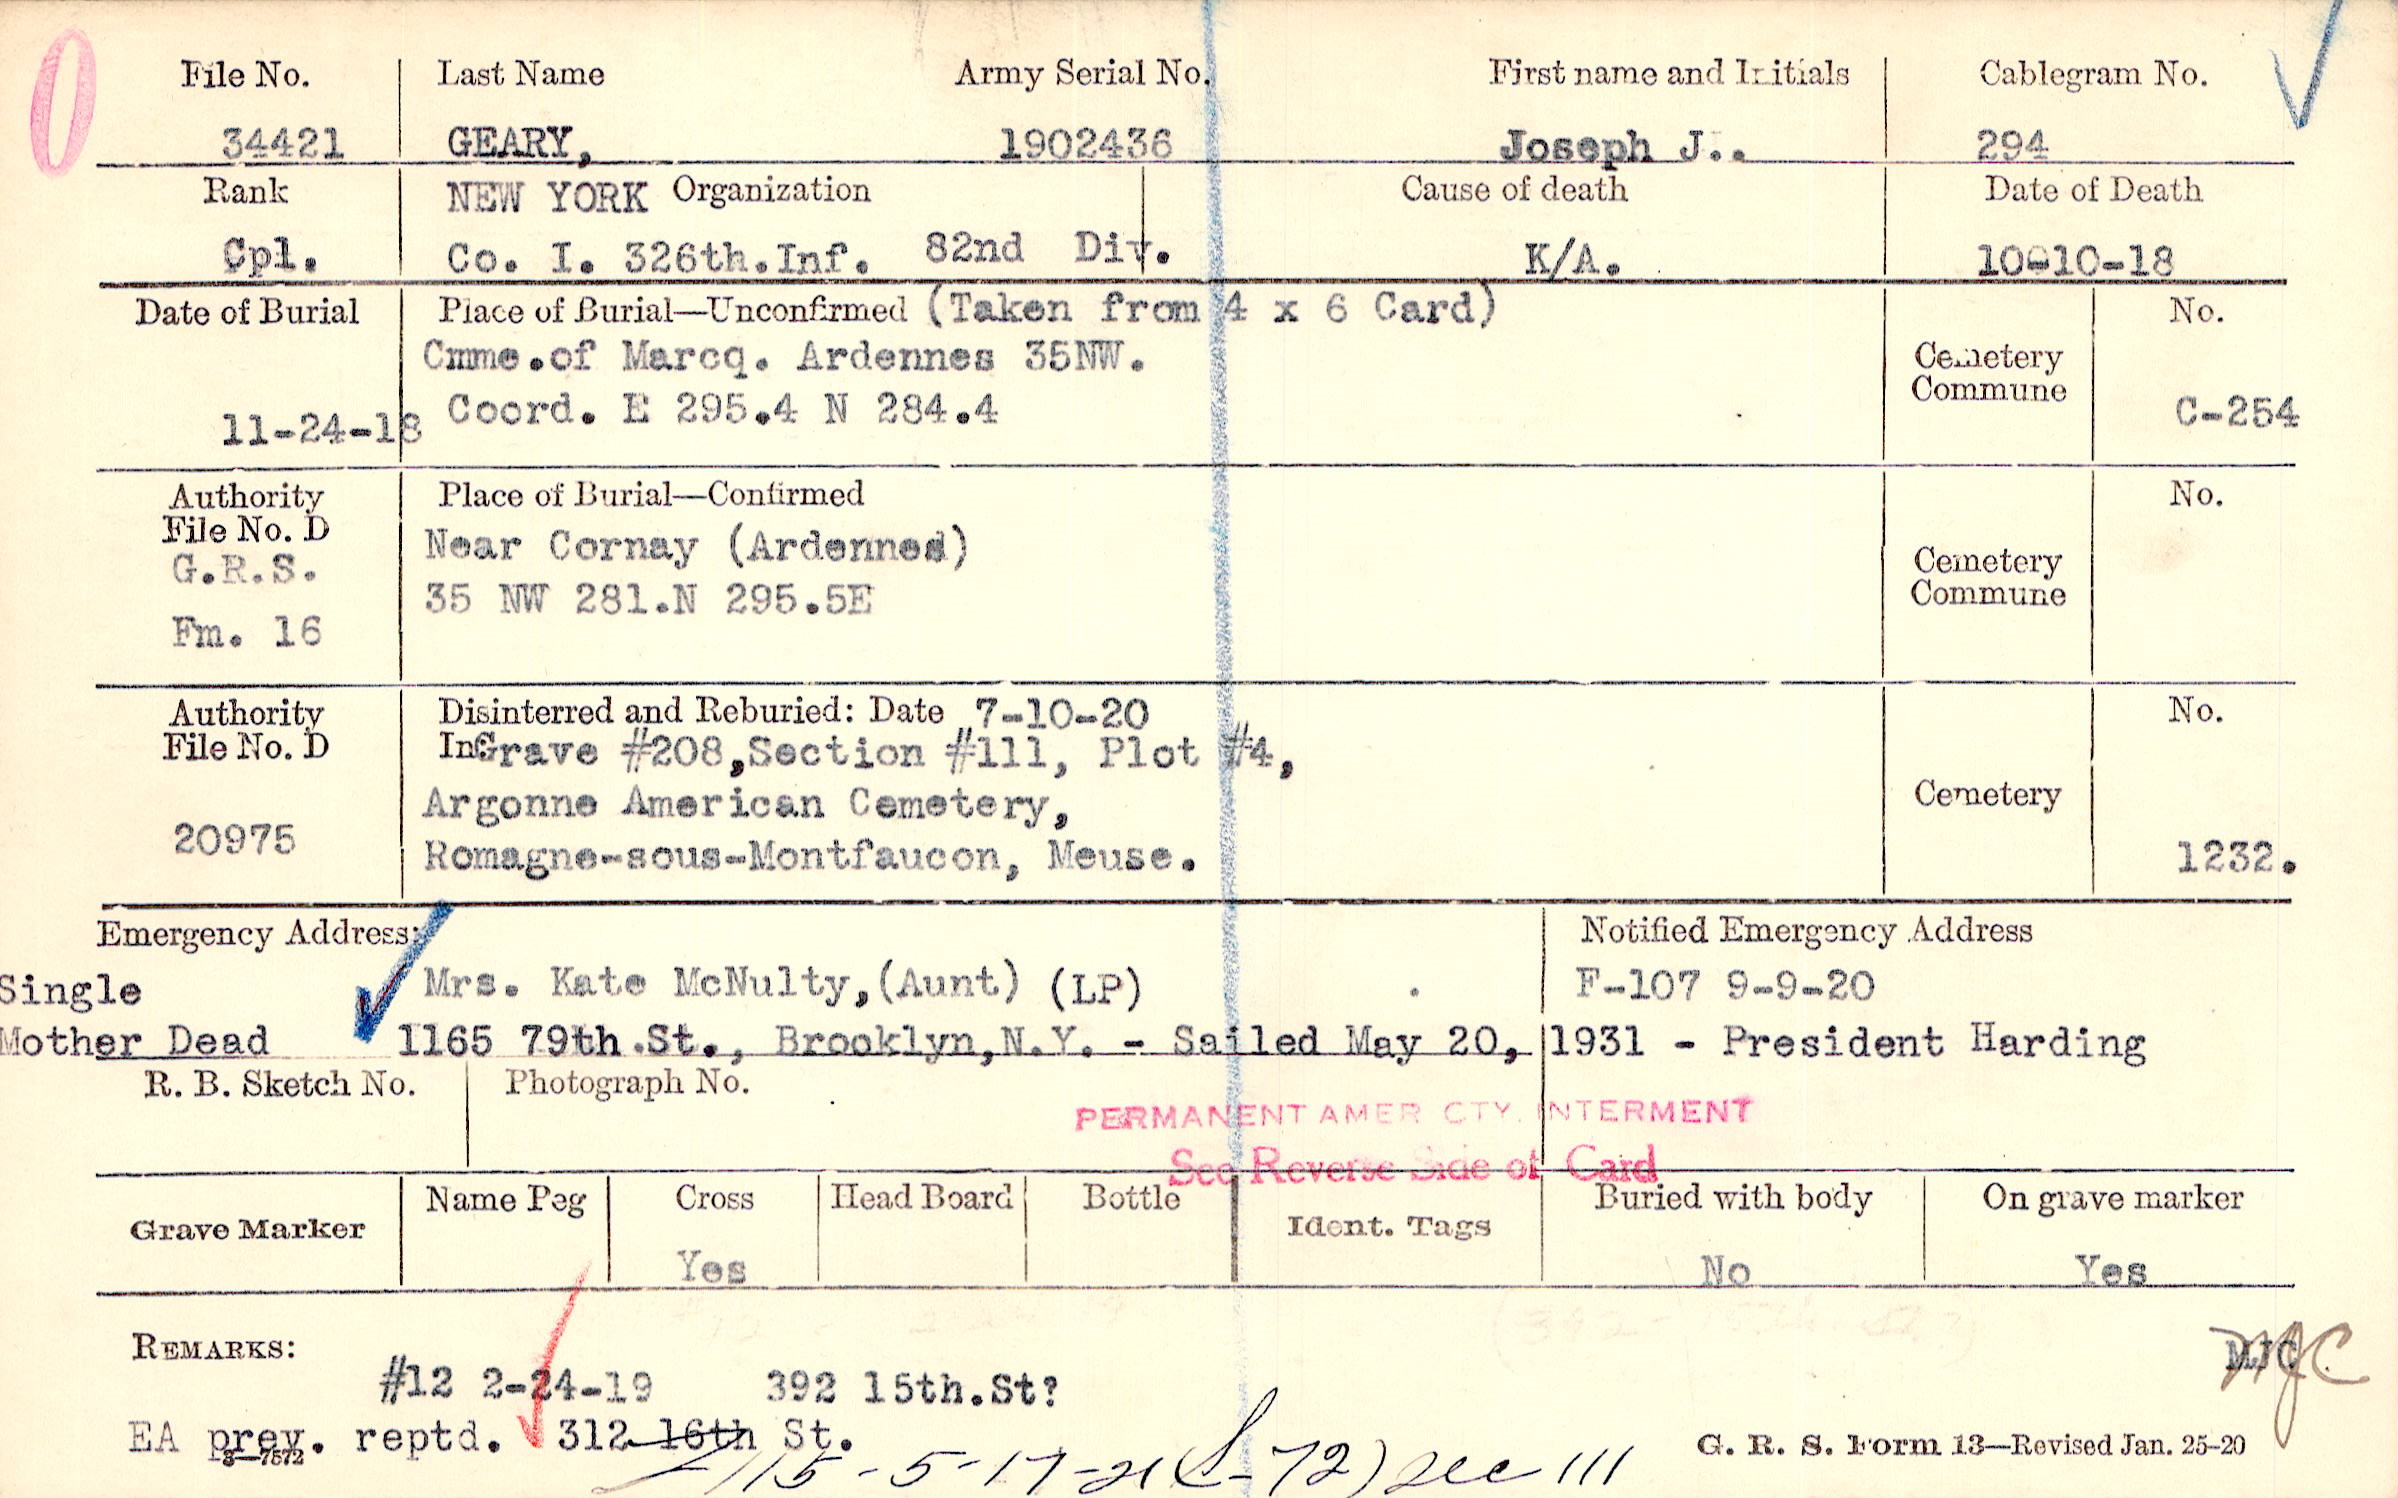 File No. Last Name Army Serial No. First name and Initials Cablegram No.
34421 GEARY, 1902436 Joseph J.. 294
Rank NEW YORK Organization Cause of death Date of Death
Cpl. Co. I. 326th.Inf. 82nd Div. K/A. 10-10-18
Date of Burial Place of Burial—Unconfirmed (Taken from 4 x 6 Card) No.
Cmme.of Marcq. Ardennes 35NW. Cemetery
Commune
11-24-18 Coord. E 295.4 N 284.4 C-254
Authority Place of Burial—Confirmed No.
File No. D Near Cornay (Ardennes) Cemetery
G.R.S. 35 NW 281.N 295.5E Commune
Fm. 16
Authority Disinterred and Reburied: Date 7-10-20 No.
File No. D In Grave #208,Section #111, Plot #4,
Argonne American Cemetery, Cemetery
20975 Romagne-sous-Montfaucon, Meuse. 1232.
Emergency Address: Notified Emergency Address
Single Mrs. Kate McNulty,(Aunt) (LP) F-107 9-9-20
Mother Dead 1165 79th.St., Brooklyn,N.Y. - Sailed May 20, 1931 - President Harding
R. B. Sketch No. Photograph No.
PERMANENT AMER CTY. INTERMENT
See Reverse Side of Card
Grave Marker Name Peg Cross Head Board Bottle Ident. Tags Buried with body On grave marker
Yes No Yes
REMARKS: MJC
#12 2-24-19 392 15th.St?
EA prev. reptd. 312 16th St.
3—7572 G. R. S. Form 13—Revised Jan. 25-20
15-5-17-21 (S-72) Sec 111